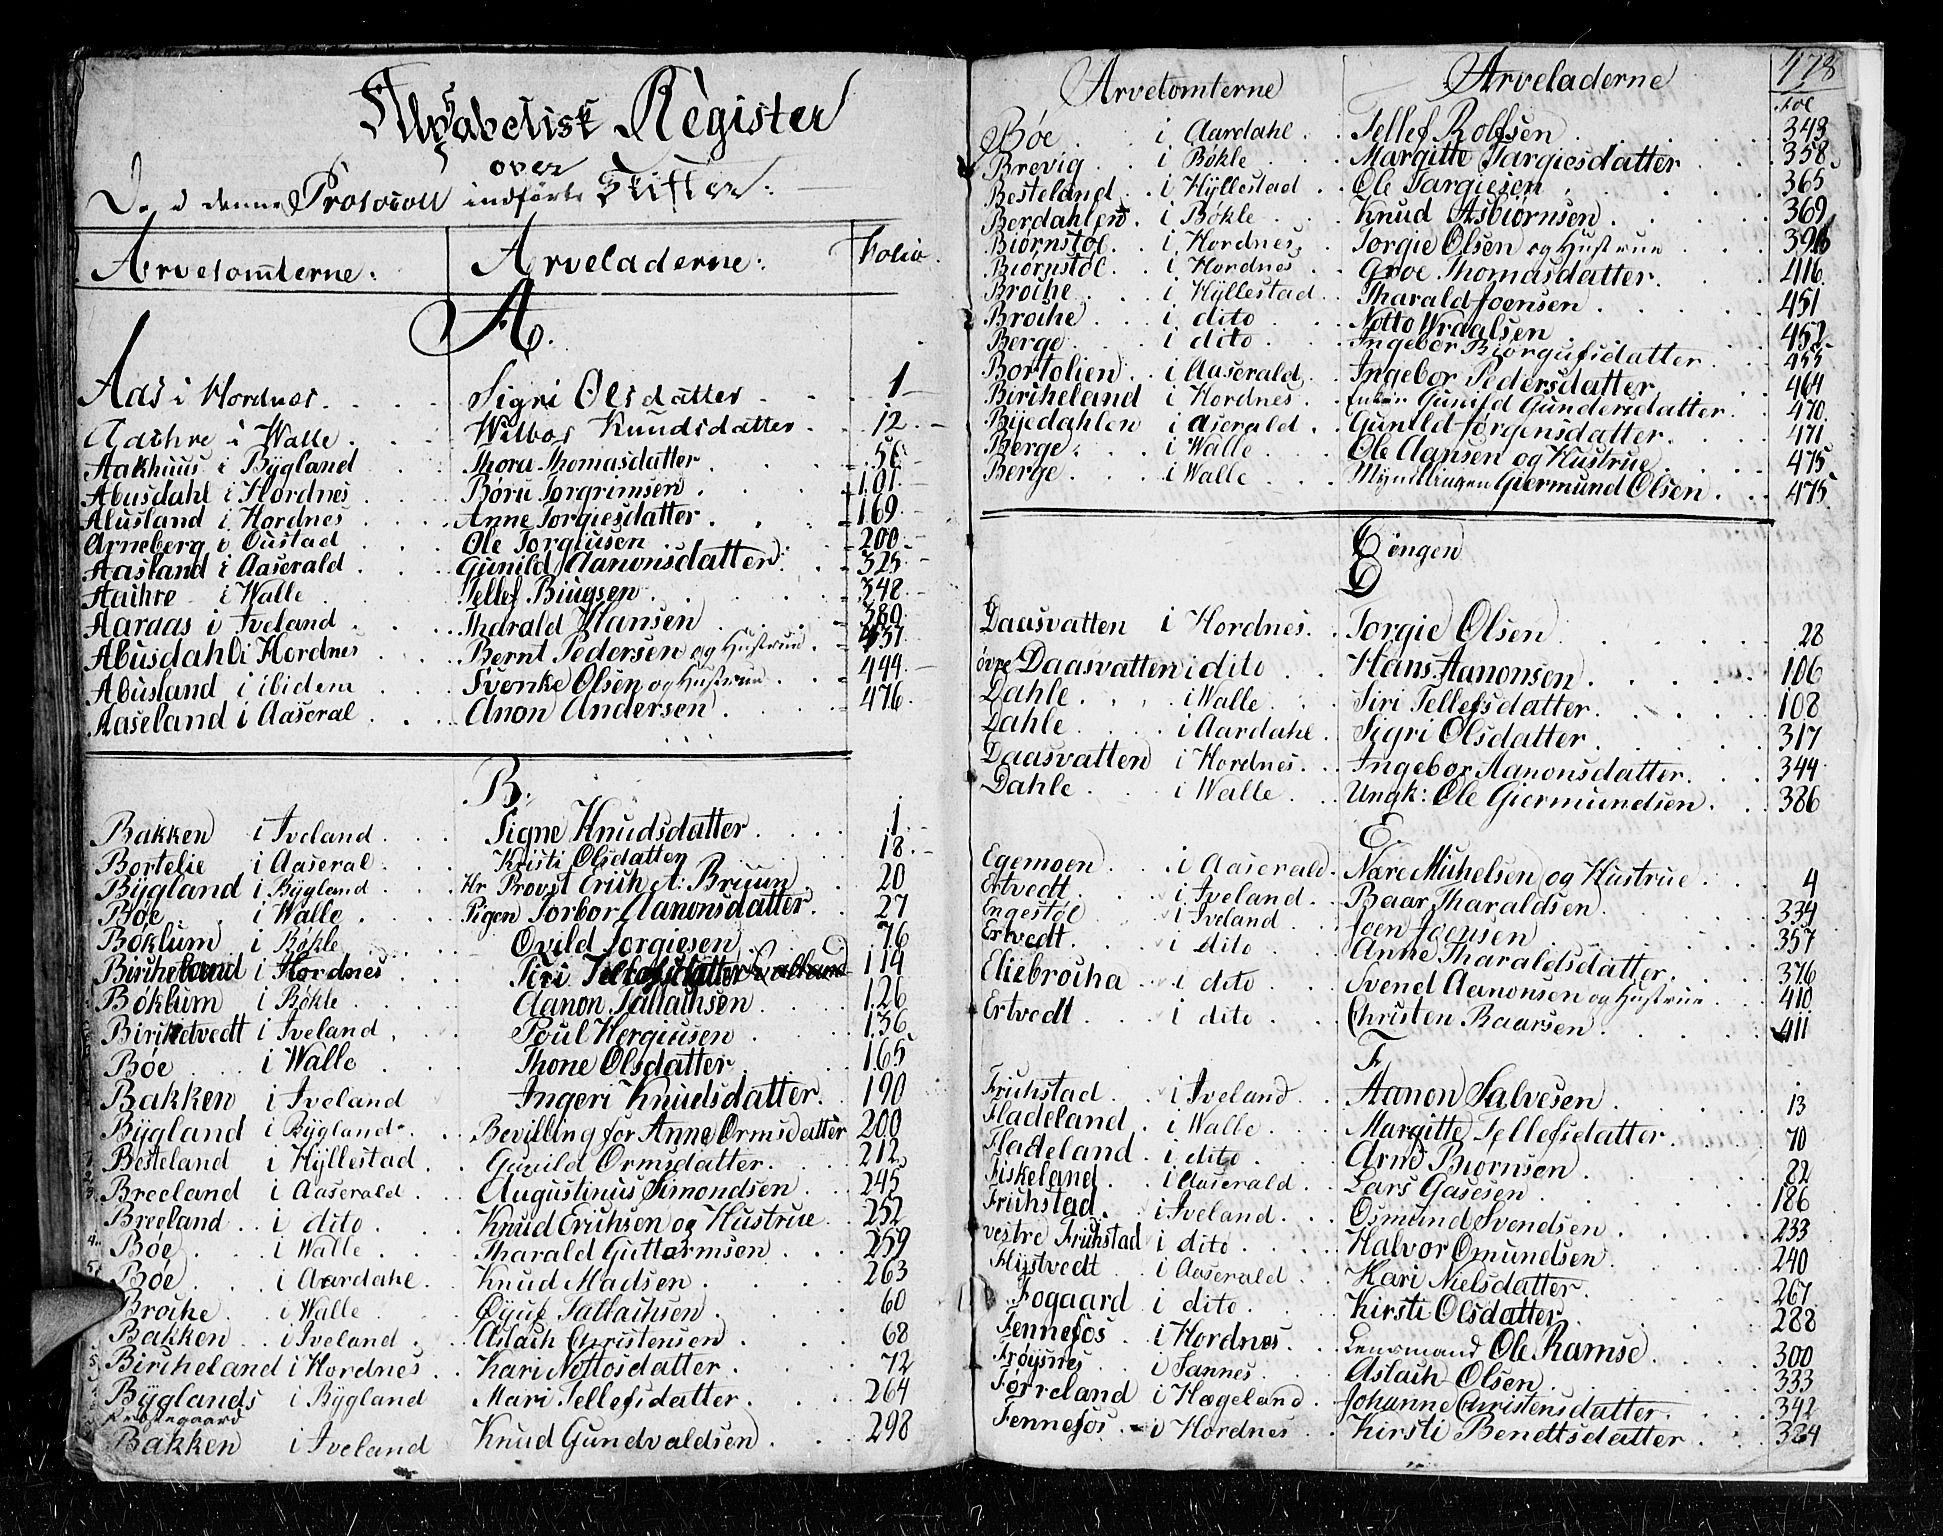 Alphabetisk Register
over
De i denne Protocoll indførte Skifter:
Arvetomterne: Arveladerne: Folio
A.
Aas i Hordnes. Sigri Olsdatter 1
Aachre i Walle. Wilbor Knudsdatter 12
Aakhuus i Bÿgland Thoru Thomasdatter 56
Abusdahl i Hordnes Børu Torgrimsen 101
Alusland i Hordnes Anne Torgiesdatter 169
Arneberg i Oustad Ole Torgiusen 200
Aasland i Aaserald Gunild Aanonsdatter 325
Aachre i Walle Tellef Biugsen 348
Aaraas i Iveland Tharald Hansen 380
Abusdahl i Hordnes Bernt Pedersen og Hustrue 437
Abusland i ibidem Svenke Olsen og Hustrue 444
Aaseland i Aaseral Anon Andersen 476
B.
Bakken i Iveland Signe Knudsdatter 1
Bortelie i Aaseral Kristi Olsdatter 18
Bÿgland i Bÿgland Hr Provst Erich A: Bruun 20
Bøe i Walle Pigen Torbor Aanonsdatter 27
Böklum i Bökle Qvild Torgiesen 76
Bircheland i Hordnes Siri Tellefsdatter 114
Böklum i Bökle Aanon Sallachsen 126
Birketvedt i Iveland Poul Hergiusen 136
Bøe i Walle Thone Olsdatter 165
Bakken i Iveland Ingeri Knudsdatter 190
Bÿgland i Bÿgland Bevilling for Anne Ormsdatter 200
Besteland i Hÿllestad Gunild Ormsdatter 212
Breeland i Aaserald Augustinus Simondsen 245
Breeland i dito Knud Erichsen og Hustrue 252
Bøe i Walle Tharald Guttormsen 259
Bøe i Aardahl Knud Madsen 263
Broche i Walle Øyuf Sallachsen 60
Bakken i Iveland Aslach Christensen 68
Bircheland i Hordnes Kari Nottosdatter 72
Bÿglands i Bÿgland Mari Tellefsdatter 264
Prestegaard
Bakken i Iveland Knud Gundvaldsen 298
Arvetomterne Arveladerne 478
Foe
Bøe i Aardahl Tellef Rolfsen 343
Brevig i Bökle Margitte Targiesdatter 358
Besteland i Hÿllestad Ole Targiesen 365
Berdahlen i Bökle Knud Asbiørnsen 369
Biørnstøl i Hordnes Torgie Olsen og Hustrue 396
Biørnstøl i Hordnes Groe Thomasdatter 416
Broche i Hÿllestad Tharald Joensen 451
Broche i dito Notto Wraalsen 452
Berge i dito Ingebor Biørgufsdatter 455
Bortolien i Aaserald Ingebor Pedersdatter 464
Bircheland i Hordnes Enken Gunild Gundersdatter 470
Bijedahlen i Aserald Gunild Jørgensdatter 471
Berge i Walle Ole Aansen og Hustrue 475
Berge i Walle Myndlingen Giermund Olsen 475
C ingen
D
Daasvatten i Hordnes Torgie Olsen 28
øvre Daasvatten i dito Hans Aanonsen 106
Dahle i Walle Siri Tellefsdatter 108
Dahle i Aardahl Sigri Olsdatter 317
Daasvatten i Hordnes Ingebor Aanonsdatter 344
Dahle i Walle Ungk: Ole Giermundsen 386
E
Egemoen i Aaserald Nare Michelsen og Hustrue 4
Ertvedt i Iveland Baar Tharaldsen 334
Engestøl i Iveland Joen Joensen 357
Ertvedt i dito Anne Tharaldsdatter 376
Eliebrocha i dito Svend Aanonsen og Hustrue 410
Ertvedt i dito Christen Baarsen 411
F
Fruhstad i Iveland Aanon Salvesen 13
Fladeland i Walle Margitte Tellefsdatter 70
Fladeland i dito Arne Biørnsen 82
Fiskeland i Aaserald Lars Gasesen 186
Fruhstad i Iveland Osmund Svendsen 233
vestre Fruhstad i dito Halvor Omundsen 240
Flÿstvedt i Aaserald Kari Nielsdatter 267
Fogaard i dito Kirsti Olsdatter 288
Fennefos i Hordnes Lensmand Ole Ramse 300
Frøysnes i Sannes Aslach Olsen 333
Førreland i Hægeland Johanne Christensdatter 342
Fennefos i Hordnes Kirsti Benettsdatter 384